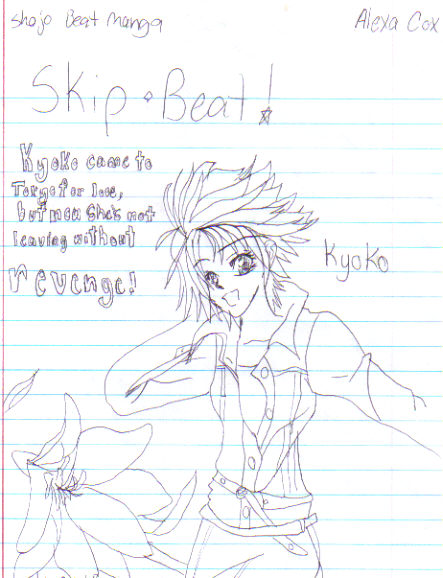 Shojo Beat Manga
Alexa Cox
Skip Beat!
Kyoko came to
Tokyo for love,
but now she's not
leaving without
revenge!
Kyoko